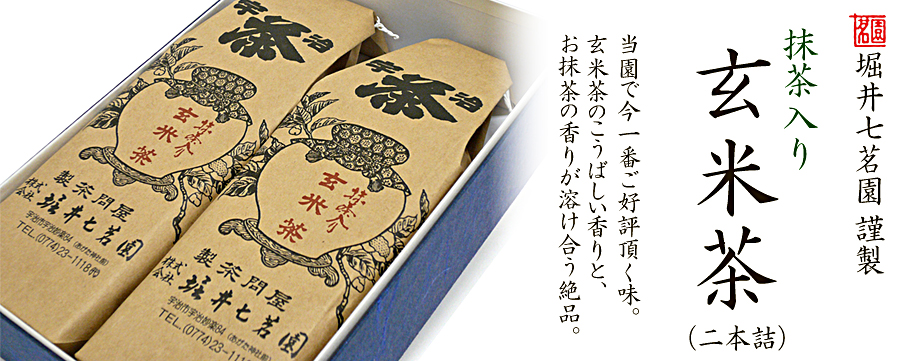 茗園
堀井七茗園 謹製
抹茶入り
玄米茶
(二本詰)
当園で今一番ご好評頂く味。
玄米茶のこうばしい香りと、
お抹茶の香りが溶け合う絶品。
宇治
茶
抹茶入り
玄米茶
製茶問屋
株式会社 堀井七茗園
TEL.(0774)23-1118㈹
宇治
茶
抹茶入り
玄米茶
製茶問屋
株式会社 堀井七茗園
宇治市宇治妙楽84(あがた神社前)
TEL.(0774)23-1118